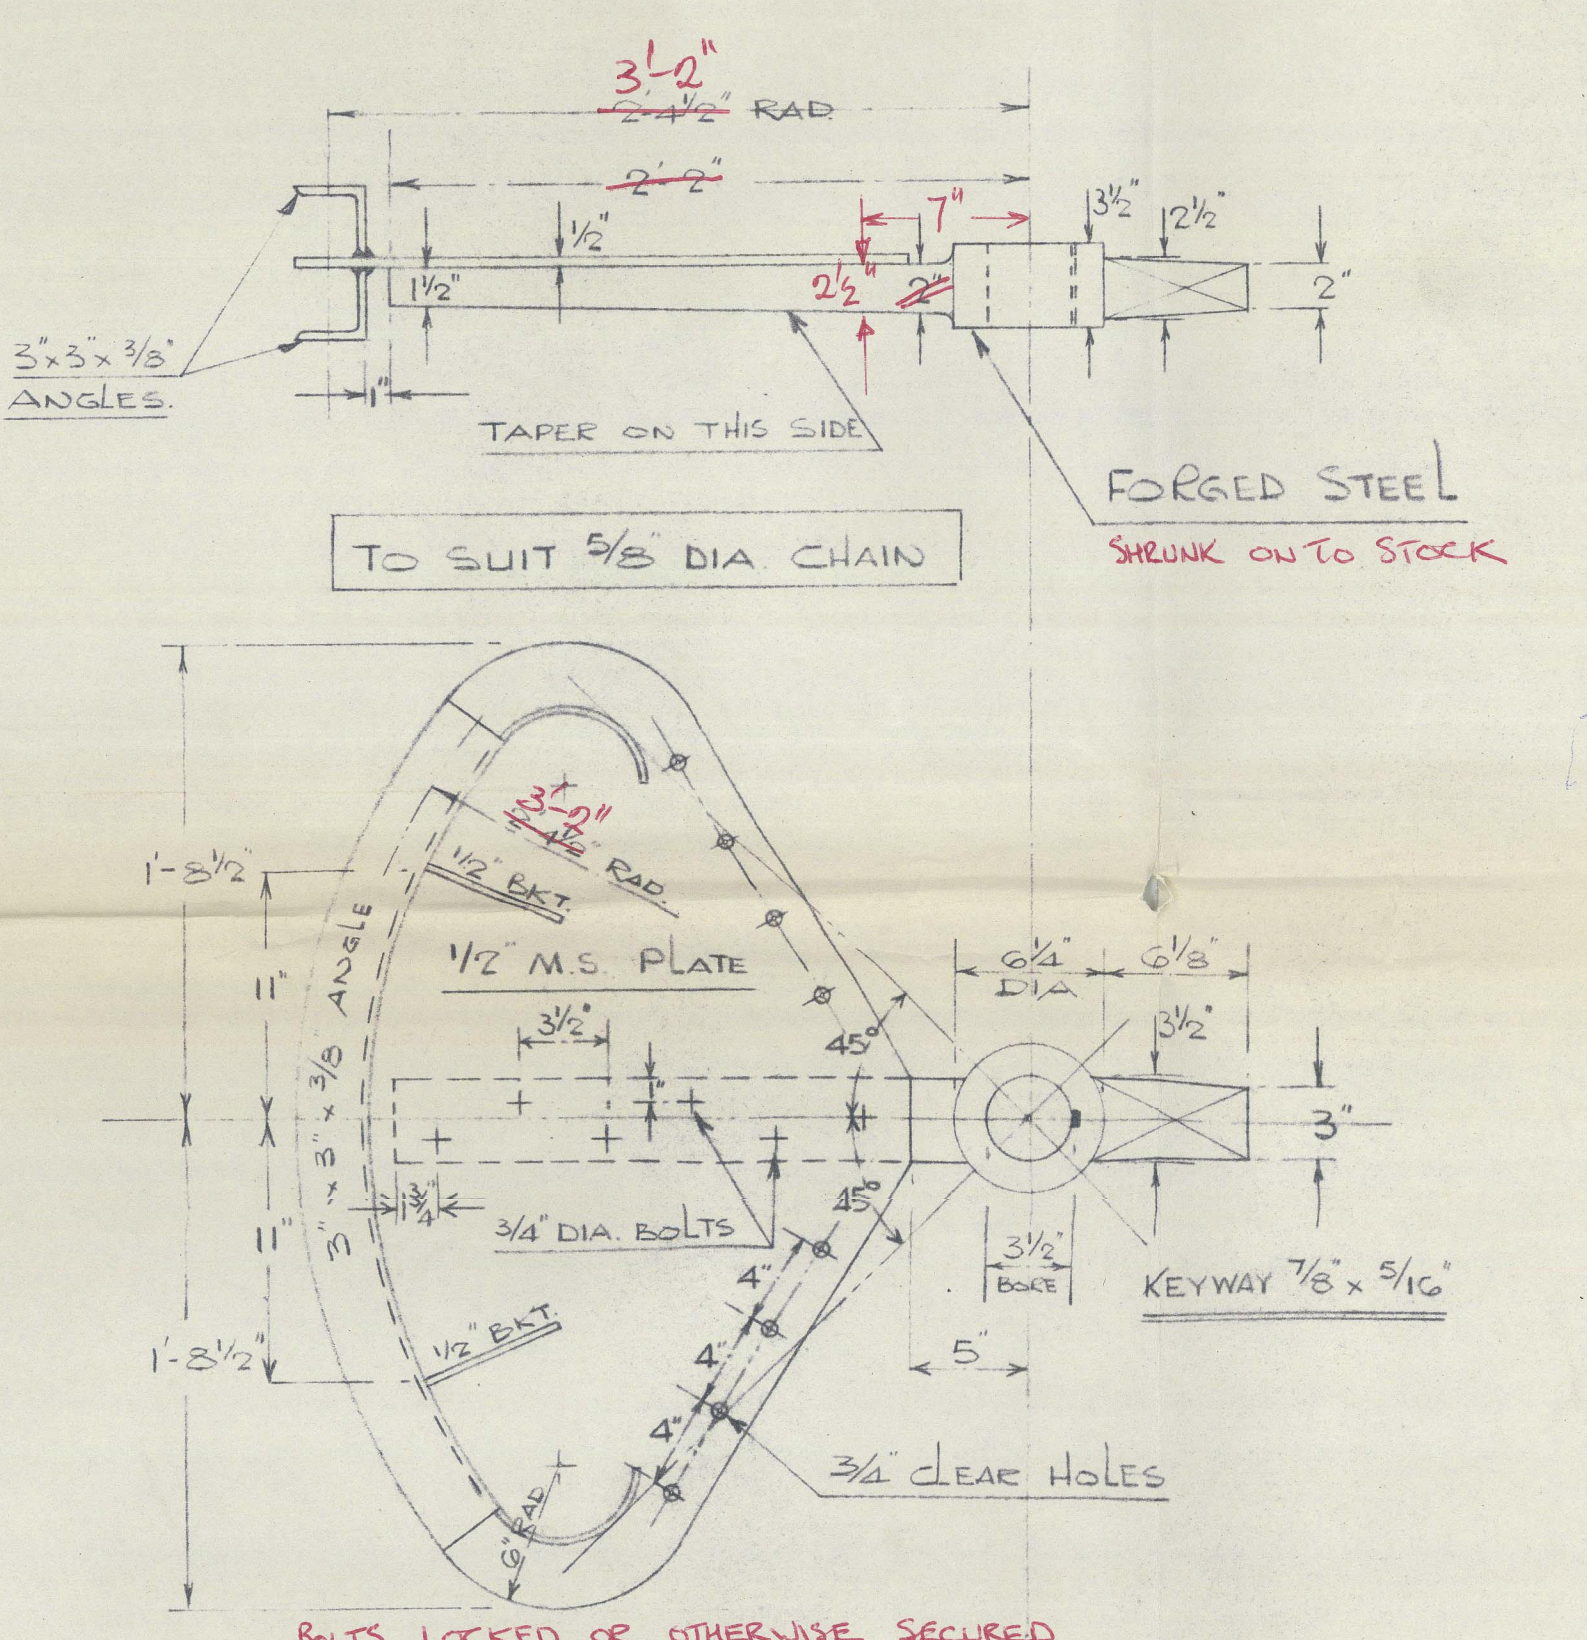 3'-2"
2'-4½" RAD.
2'-2"
7"
3½"
2½"
½"
1½"
2½"
2"
2"
3"x3"x 3/8"
ANGLES.
1"
TAPER ON THIS SIDE
FORGED STEEL
SHRUNK ON TO STOCK
TO SUIT 5/8" DIA. CHAIN
3'-2"
2'-4½" RAD.
1'-8½"
½" BKT.
11"
3" x 3" x 3/8 ANGLE
½" M.S. PLATE
6¼"
DIA
6⅛"
3½"
3½"
45°
1"
3"
1¾"
45°
11"
¾" DIA. BOLTS
3½"
BORE
KEYWAY 7/8" x 5/16"
4"
1'-8½"
½" BKT.
4"
5"
4"
¾" CLEAR HOLES
6" RAD
BOLTS LOCKED OR OTHERWISE SECURED